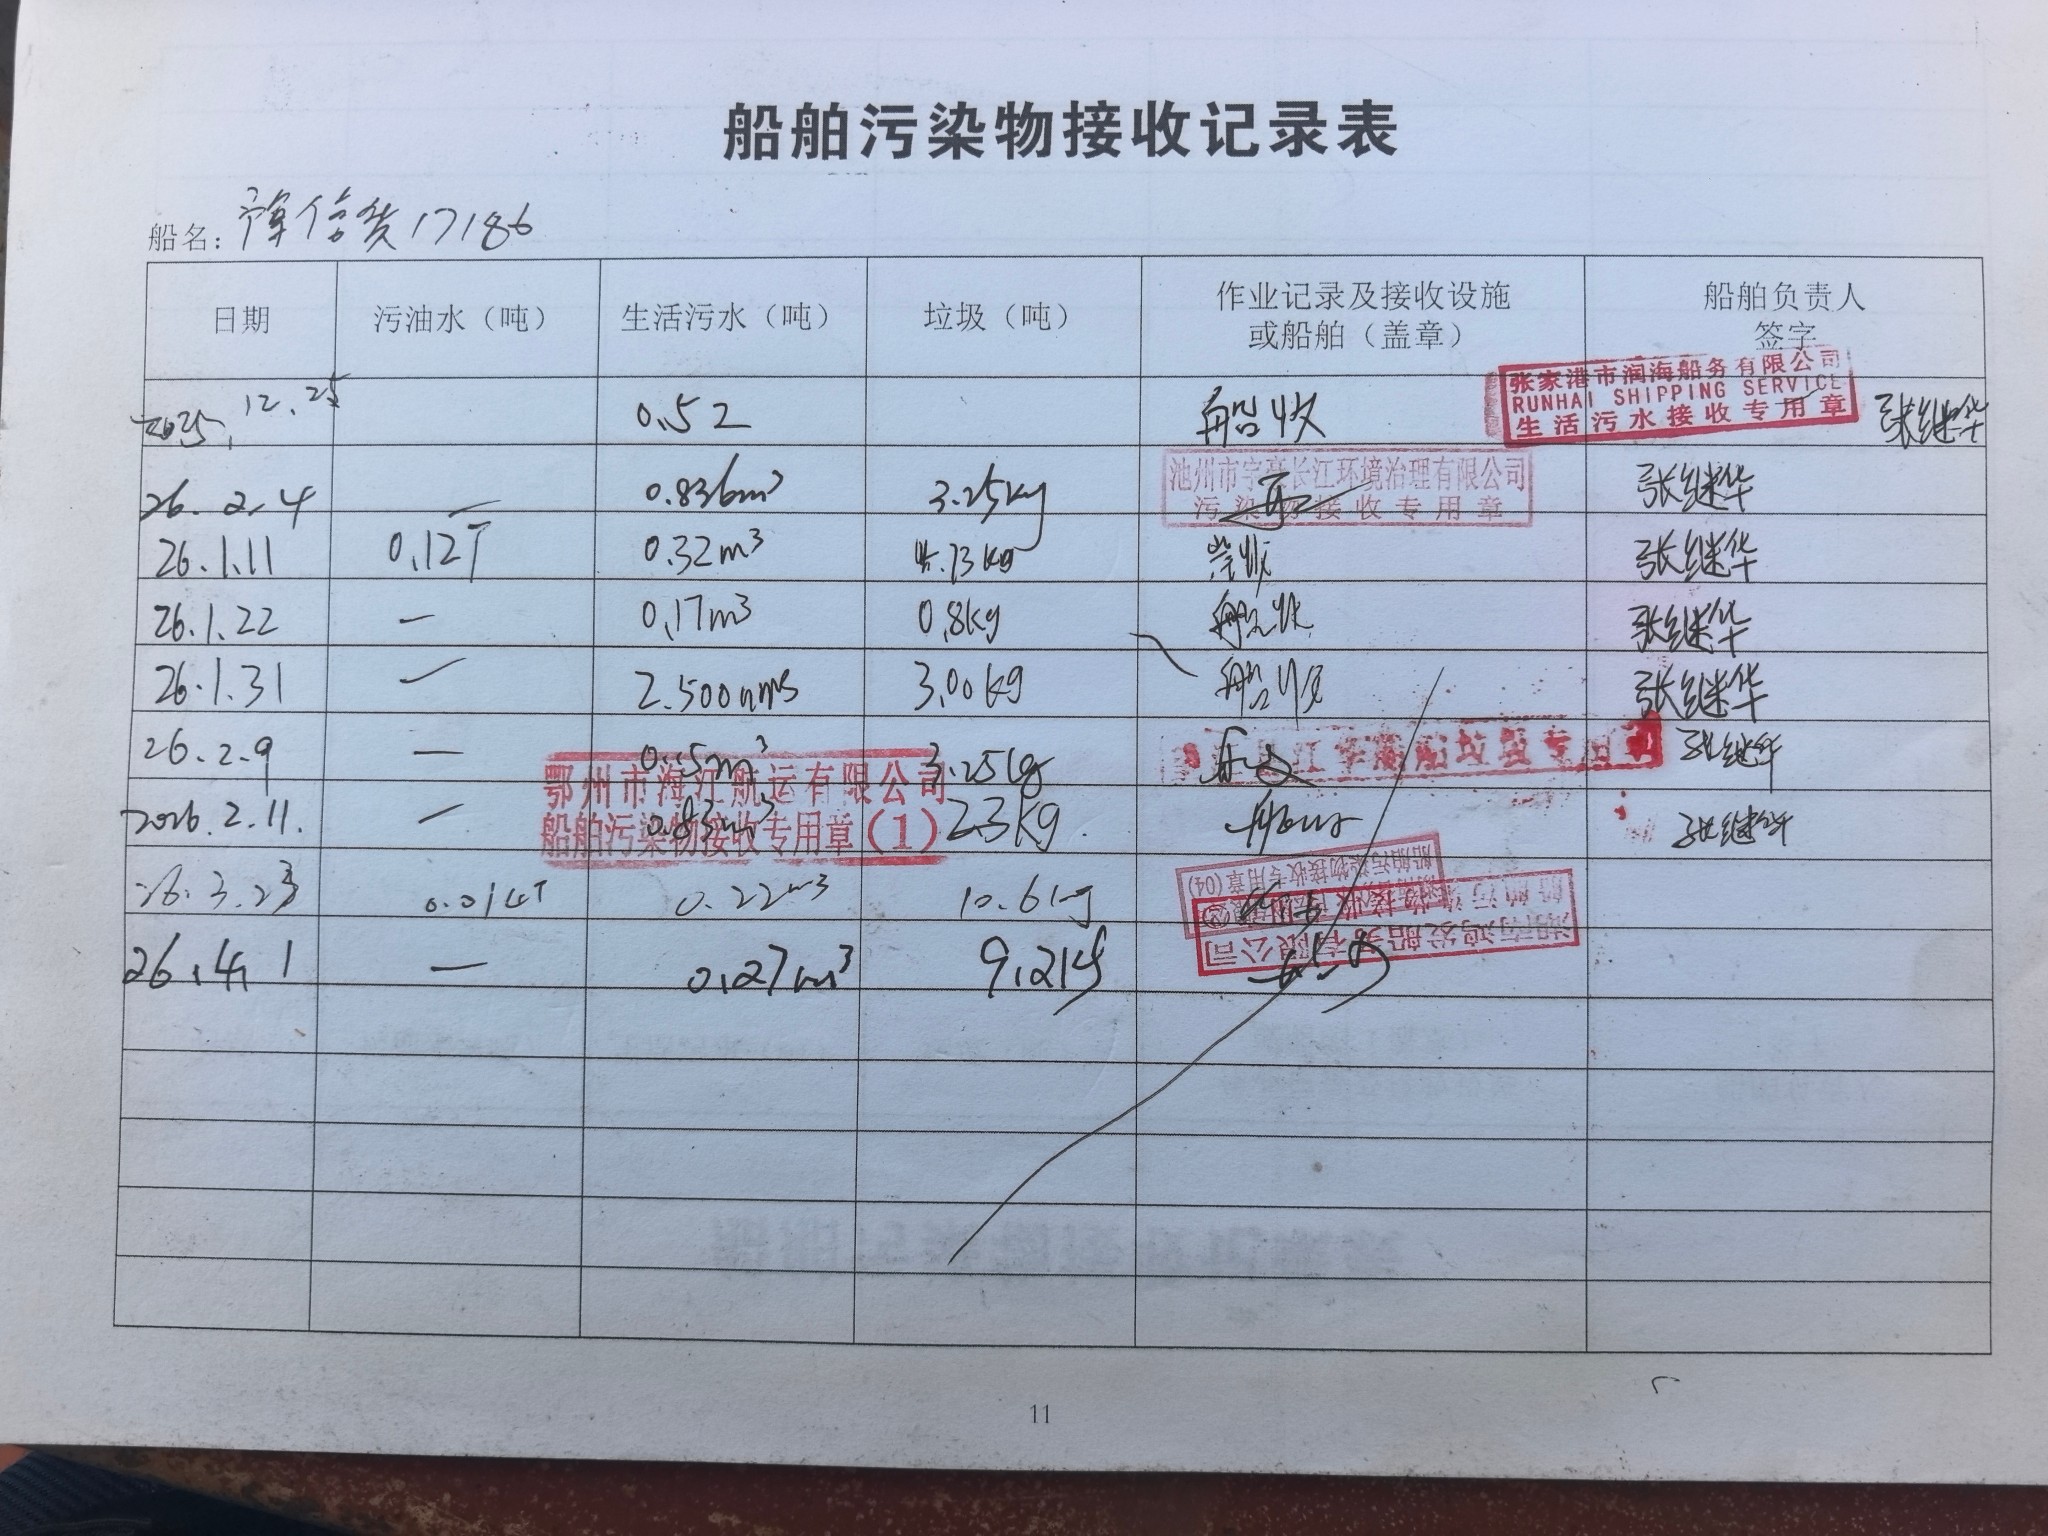 船舶污染物接收记录表
船名: 信货17186
日期 污油水（吨） 生活污水（吨） 垃圾（吨） 作业记录及接收设施或船舶（盖章） 船舶负责人签字
2025.12.25 0.52 船收 张继华
张家港市润海船务有限公司
RUNHAI SHIPPING SERVICE
生活污水接收专用章
26.2.4 — 0.836m³ 3.25kg 张继华
池州市宇亳长江环境治理有限公司
污染物接收专用章
26.1.11 0.12T 0.32m³ 4.73kg 张继华
26.1.22 — 0.17m³ 0.8kg 船收 张继华
26.1.31 — 2.500m³ 3.00kg 船收 张继华
26.2.9 — 0.15m³ 3.25kg 张继华
鄂州市海江航运有限公司
船舶污染物接收专用章(1)
2026.2.11. — 0.83m³ 2.3kg 张继华
26.3.23 0.014T 0.22m³ 10.61kg
船舶污染物接收专用章(04)
湖南鸿发船务有限公司
船舶污染物接收专用章
26.4.1 — 0.27m³ 9.21kg
11